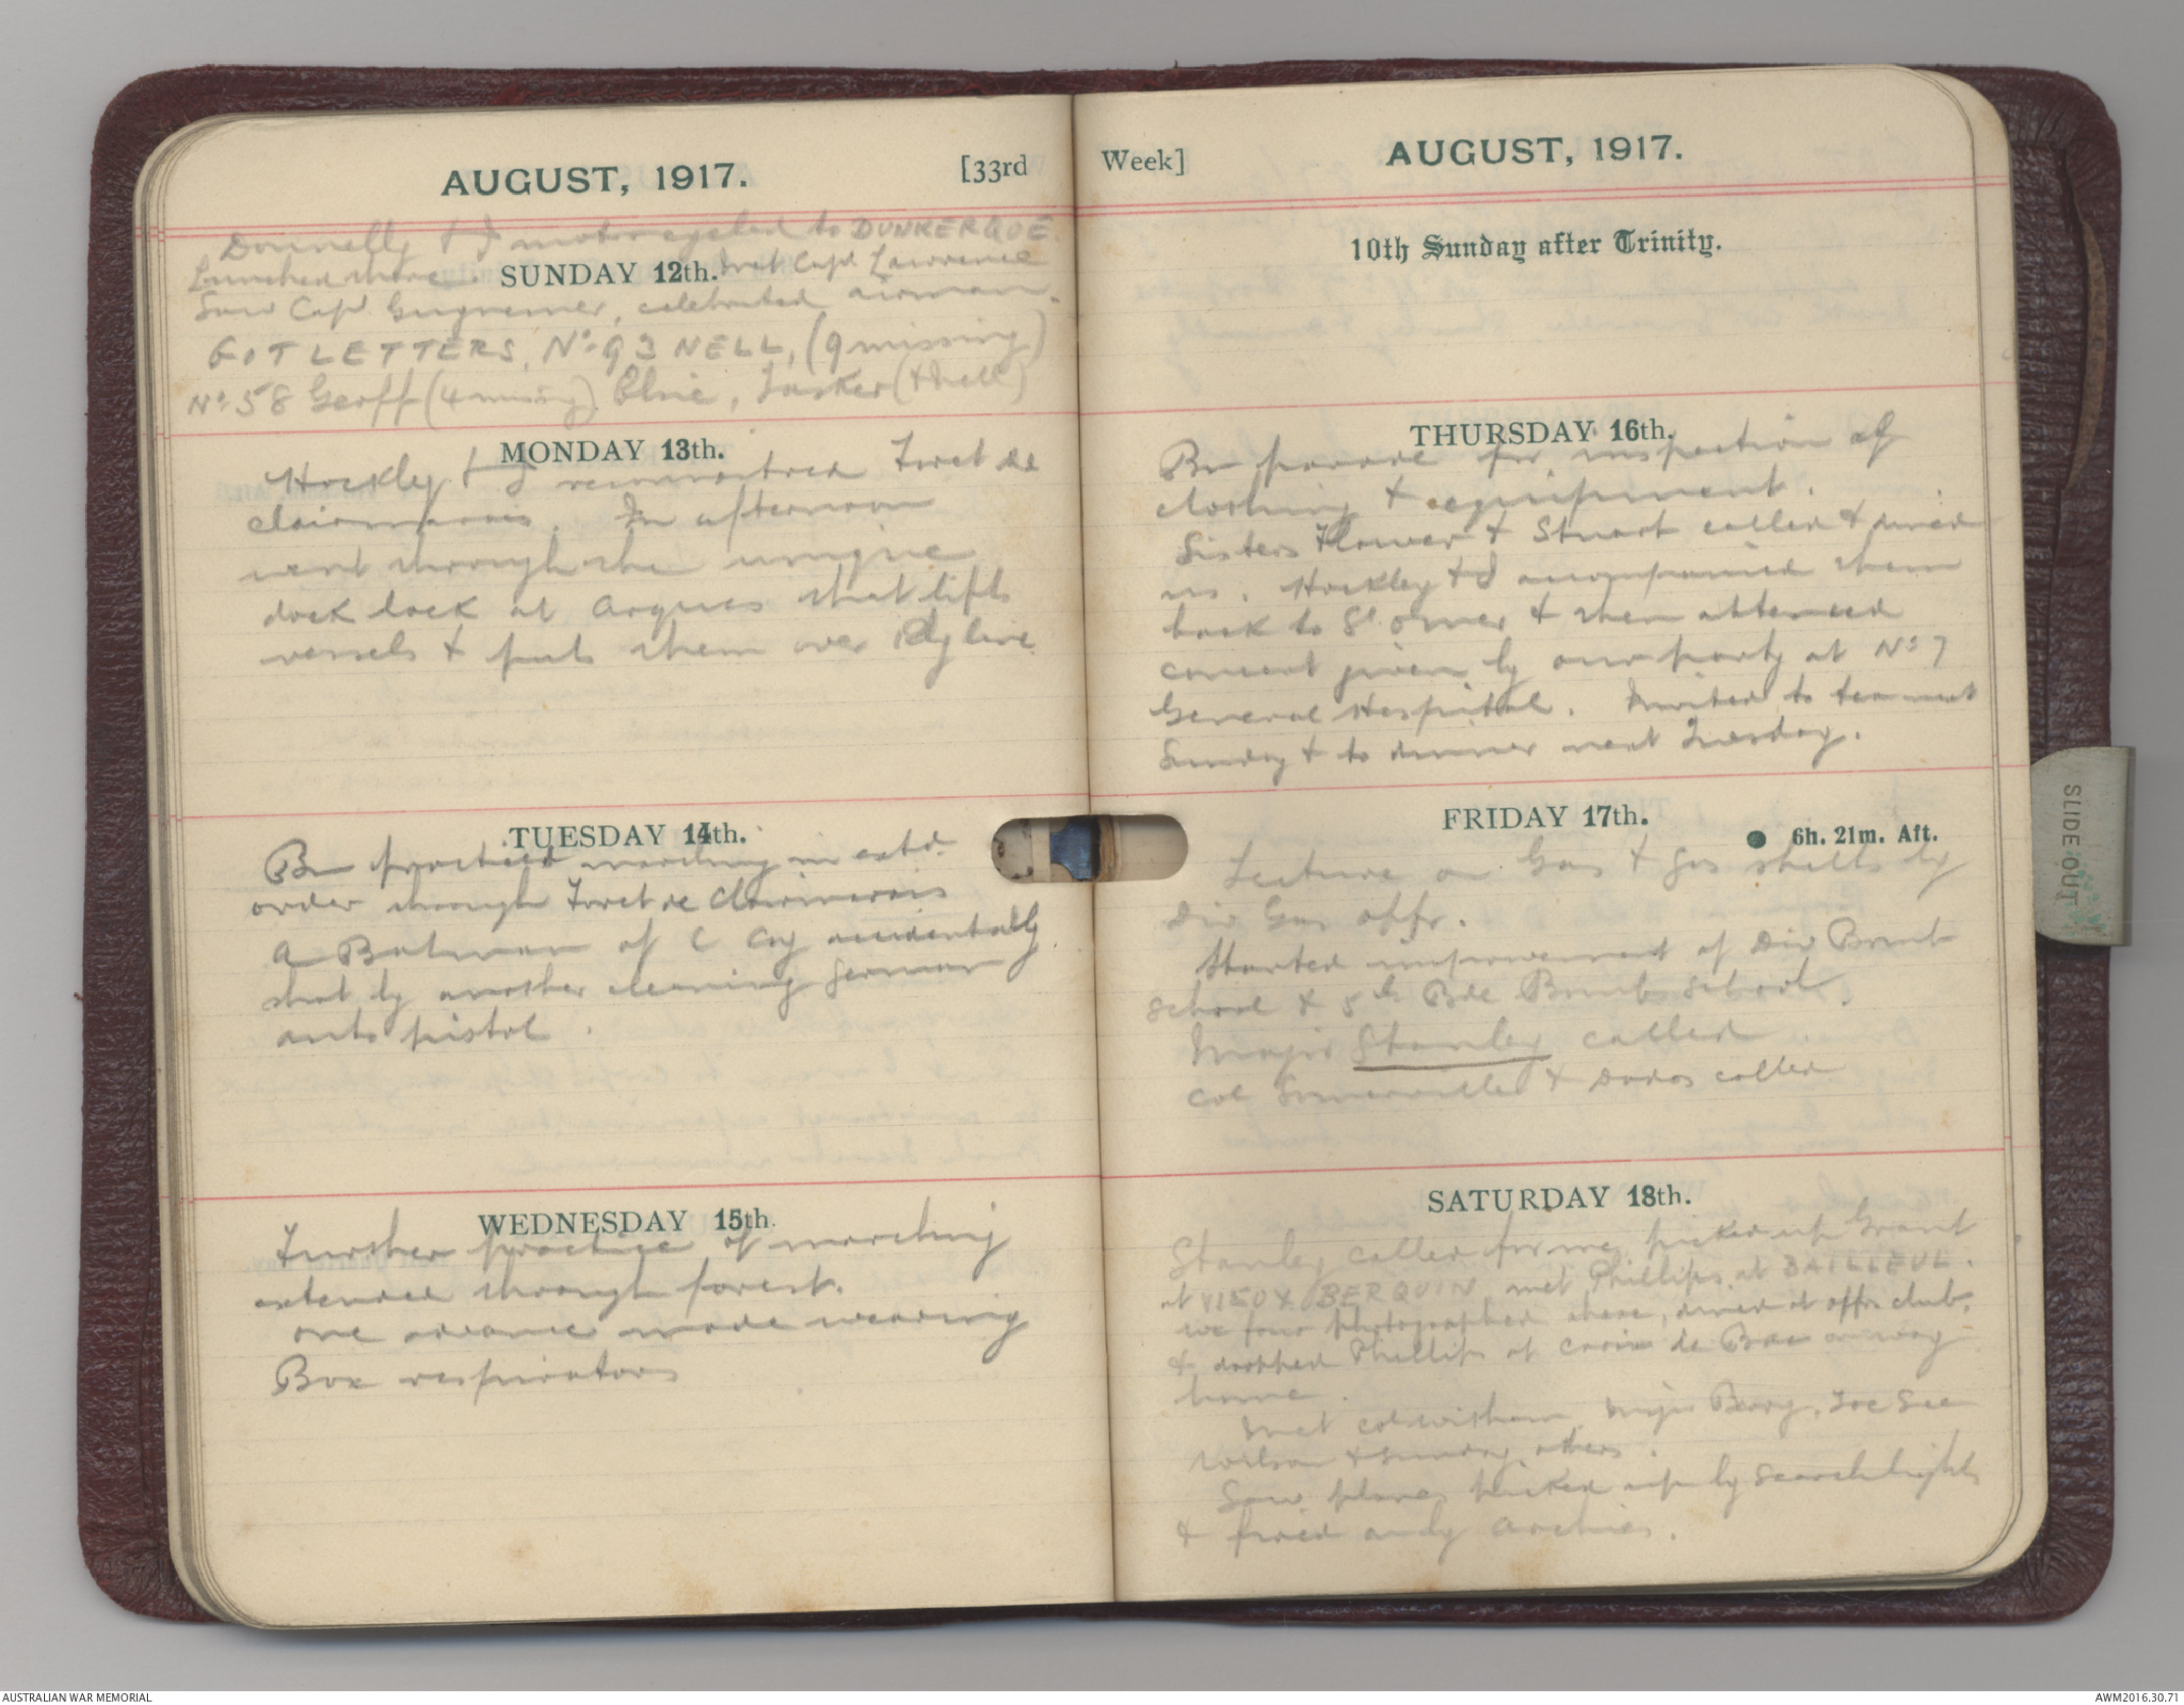 AUGUST, 1917. [33rd
Donnelly & I motor cycled to DUNKERQUE.
Lunched there. SUNDAY 12th. Met Capt Lawrence
Saw Capt Guynemer, celebrated airman.
GOT LETTERS, No 93 NELL, (9 missing)
No 58 Geoff (4 missing) Elsie, Tasker (& Nell)
MONDAY 13th.
Hockley & I reconnoitred Foret de
clairmarais. In afternoon
went through the unique
dock lock at Arques that lifts
vessels & puts them over Rly line.
TUESDAY 14th.
Bn practised marching in extd.
order through Foret de Clairmarais
A Batman of C Coy accidentally
shot by another cleaning german
auto pistol.
WEDNESDAY 15th.
Further practice of marching
extended through forest.
one advance made wearing
Box respirators
Week] AUGUST, 1917.
10th Sunday after Trinity.
THURSDAY 16th.
Bn parade for inspection of
clothing & equipment.
Sisters Flower & Stuart called & dined
us. Hockley & I accompanied them
back to St omer & then attended
concert given by our party at No 7
General Hospital. Invited to tea next
Sunday & to dinner next Tuesday.
FRIDAY 17th.
6h. 21m. Aft.
Lecture on Gas & gas shells by
Div Gas offr.
Started improvement of Div Bomb
School & 5th Bde Bomb School.
Major Stanley called
Col Somerville & Dados called
SATURDAY 18th.
Stanley called for me, picked up Grant
at VIEUX BERQUIN, met Phillips at BAILLEUL.
we four photographed there, dined at offrs club,
& dropped Phillips at Croix de Bac on way
home.
Met col witham, Major Berry, Joe See
Wilson & sundry others.
Saw planes picked up by searchlights
& fired on by Archies.
SLIDE OUT
AUSTRALIAN WAR MEMORIAL
AWM2016.30.71